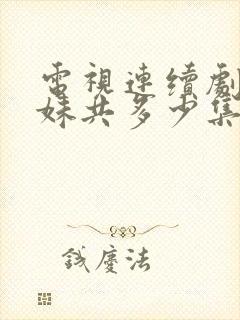 電視連續劇
妹共多少集
誠慶法